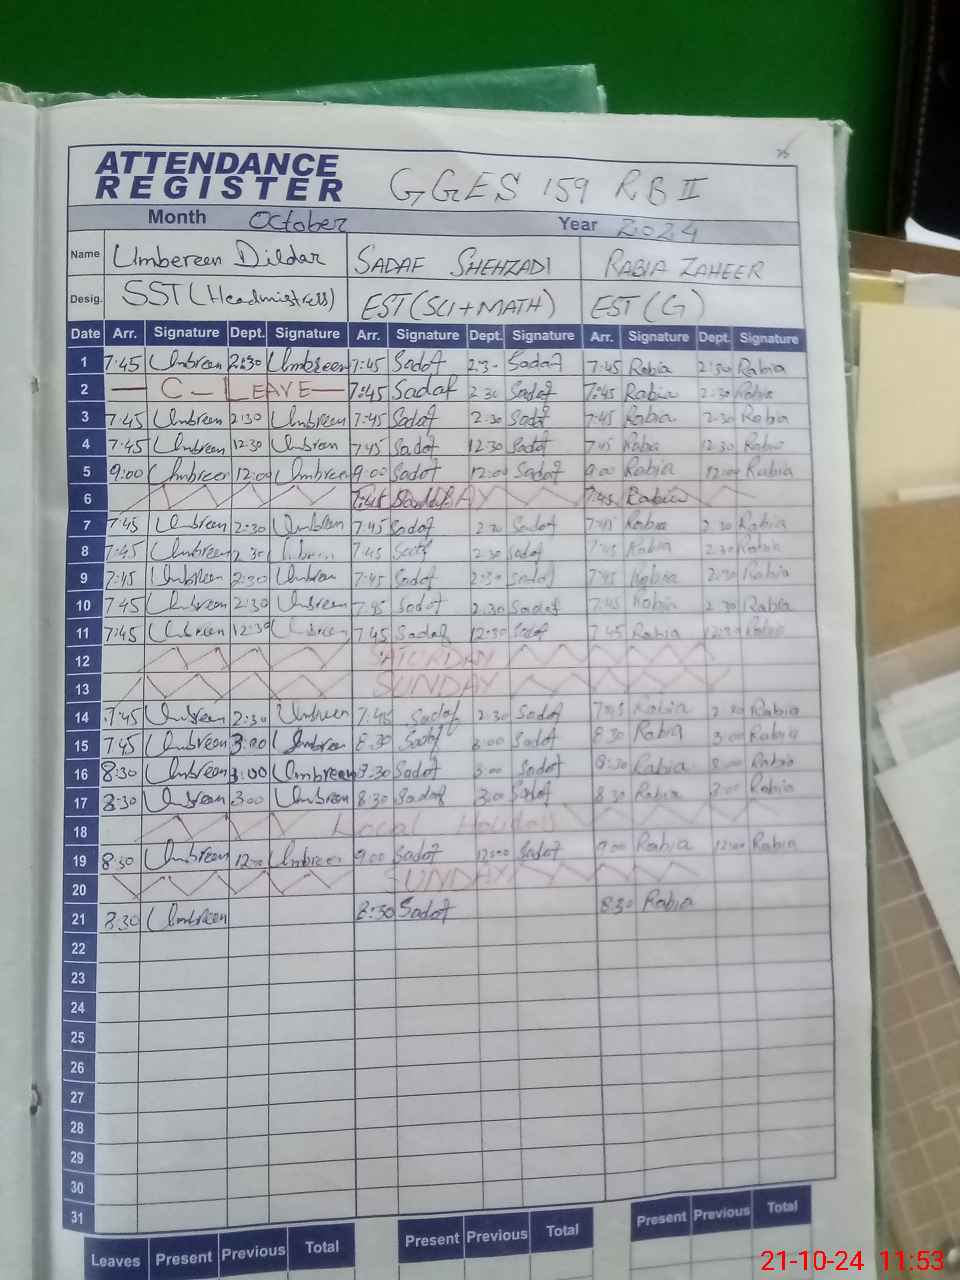 ATTENDANCE
REGISTER GGES 159 RB II
Month October Year 2024
Name Umbereen Dildar SADAF SHEHZADI RABIA ZAHEER
Desig. SST (Headmistress) EST (SCI+MATH) EST (G)
Date Arr. Signature Dept. Signature Arr. Signature Dept. Signature Arr. Signature Dept. Signature
1 7:45 Umbreen 2:30 Umbreen 7:45 Sadaf 2:3- Sadaf 7:45 Rabia 2:30 Rabia
2 C - LEAVE 7:45 Sadaf 2 30 Sadaf 7:45 Rabia 2-30 Rabia
3 7:45 Umbreen 2:30 Umbreen 7:45 Sadaf 2-30 Sadaf 7:45 Rabia 2-30 Rabia
4 7:45 Umbreen 12:30 Umbreen 7:45 Sadaf 12:30 Sadaf 7:45 Rabia 12:30 Rabia
5 9:00 Umbreen 12:00 Umbreen 9:00 Sadaf 12:00 Sadaf 9:00 Rabia 12:00 Rabia
6 7:45 Rabia
7 7:45 Umbreen 2:30 Umbreen 7:45 Sadaf 2:30 Sadaf 7:45 Rabia 2:30 Rabia
8 7:45 Umbreen 2:30 7:45 Sadaf 2:30 Sadaf 7:45 Rabia 2:30 Rabia
9 7:45 Umbreen 2:30 Umbreen 7:45 Sadaf 2:30 Sadaf 7:45 Rabia 2:30 Rabia
10 7:45 Umbreen 2:30 Umbreen 7:45 Sadaf 2:30 Sadaf 7:45 Rabia 2:30 Rabia
11 7:45 Umbreen 12:30 Umbreen 7:45 Sadaf 12:30 Sadaf 7:45 Rabia 12:30 Rabia
12 SATURDAY
13 SUNDAY
14 7:45 Umbreen 2:30 Umbreen 7:45 Sadaf 2:30 Sadaf 7:45 Rabia 2:30 Rabia
15 7:45 Umbreen 3:00 Umbreen 8:30 Sadaf 3:00 Sadaf 8:30 Rabia 3:00 Rabia
16 8:30 Umbreen 3:00 Umbreen 8:30 Sadaf 3:00 Sadaf 8:30 Rabia 3:00 Rabia
17 8:30 Umbreen 3:00 Umbreen 8:30 Sadaf 3:00 Sadaf 8:30 Rabia 3:00 Rabia
18 Local Holiday
19 8:30 Umbreen 12:00 Umbreen 9:00 Sadaf 12:00 Sadaf 9:00 Rabia 12:00 Rabia
20 SUNDAY
21 8:30 Umbreen 8:30 Sadaf 8:30 Rabia
22
23
24
25
26
27
28
29
30
31
Leaves Present Previous Total Present Previous Total Present Previous Total
21-10-24 11:53